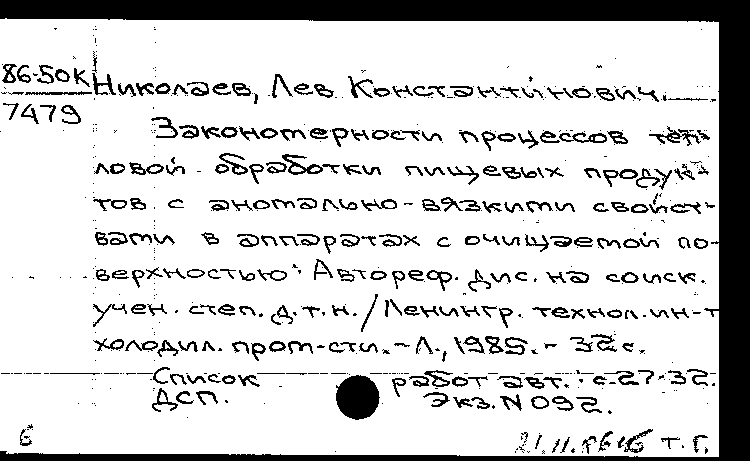 86-50к Николаев, Лев Константинович.
7479
Закономерности процессов теп-
ловой обработки пищевых продук-
тов с аномально-вязкими свойст-
вами в аппаратах с очищаемой по-
верхностью: Автореф. дис. на соиск.
учен. степ. д.т.н. / Ленингр. технол. ин-т
холодил. пром-сти. - Л., 1985. - 32 с.
Список работ авт.: с. 27-32.
ДСП. Экз. N 092.
6 21.11. Т. Г.